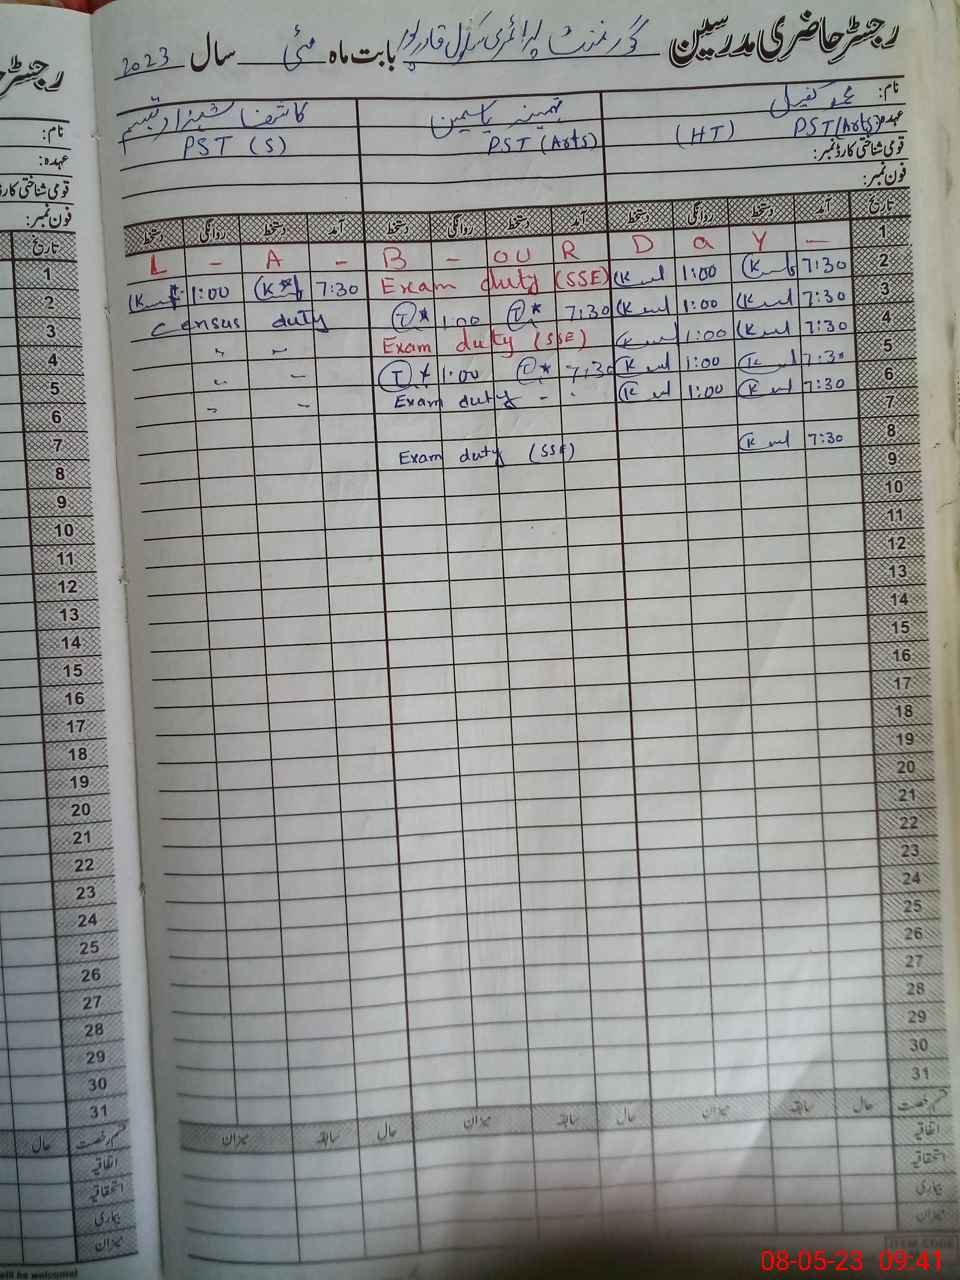 رجسٹر حاضری مدرسین گورنمنٹ پرائمری سکول قادر پور بابت ماہ مئی سال 2023
نام: محمد کفیل تہمینہ یاسمین کاشف شہزاد تبسم
عہدہ: PST (Arts) (HT) PST (Arts) PST (S)
قومی شناختی کارڈ نمبر:
فون نمبر:
تاریخ آمد دستخط روانگی دستخط آمد دستخط روانگی دستخط آمد دستخط روانگی دستخط
1 L - A - B - OU R D a Y -
2 1:00 7:30 Exam duty (SSE) 1:00 7:30
3 Census duty 1:00 7:30 1:00 7:30
4 " " Exam duty (SSE) 1:00 7:30
5 " - 1:00 7:30 1:00 7:30
6 " - Exam duty - - 1:00 7:30
7
8 Exam duty (SSE) 7:30
9
10
11
12
13
14
15
16
17
18
19
20
21
22
23
24
25
26
27
28
29
30
31
قسم رخصت حال سابقہ میزان حال سابقہ میزان حال سابقہ میزان
اتفاقیہ
استحقاقیہ
بیماری
میزان
رجسٹر
نام:
عہدہ:
قومی شناختی کارڈ
فون نمبر:
تاریخ
1
2
3
4
5
6
7
8
9
10
11
12
13
14
15
16
17
18
19
20
21
22
23
24
25
26
27
28
29
30
31
قسم رخصت حال
اتفاقیہ
استحقاقیہ
بیماری
میزان
will be welcome!
ITEM CODE
08-05-23 09:41